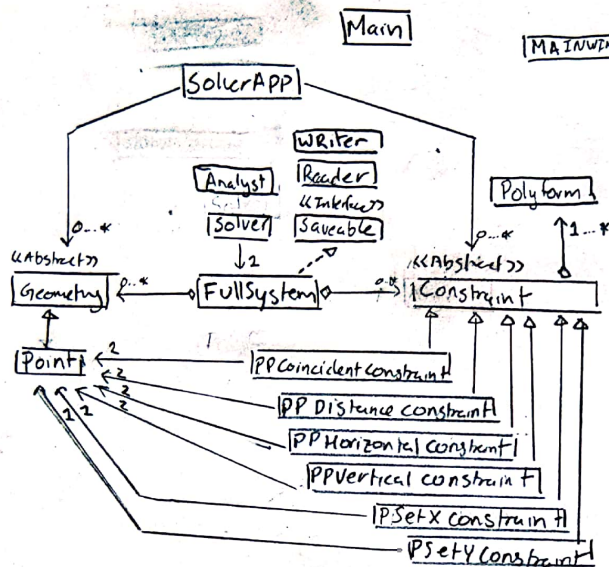 Main
MAINWIN
SolverAPP
WRiter
Reader
Analyst
Solver
<<Interface>>
Saveable
Polyform
0...*
0...*
1...*
<<Abstract>>
<<Abstract>>
1
Geometry
0..*
FullSystem
0..*
Constraint
Point
2
PPCoincident constraint
2
PP Distance constraint
2
PP Horizontal constraint
2
PPVertical constraint
1
PSetX constraint
PSetY constraint